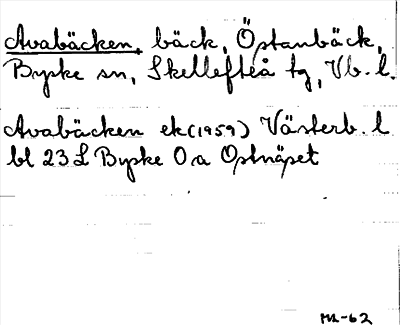 Avabäcken, bäck, Östanbäck,
Byske sn, Skellefteå tg, Vb. l.
Avabäcken ek (1959) Västerb. l
bl 23 L Byske O a Ostnäset